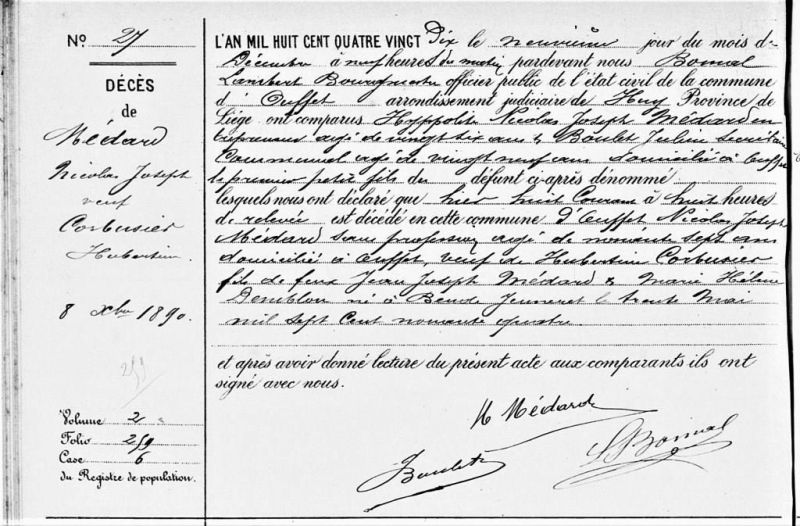 N° 27
DÉCÈS
de
Médard
Nicolas Joseph
veuf
Corbusier
Hubertine.
8 Xbre 1890.
259
Volume 2
Folio 259
Case 6
du Registre de population.
L'AN MIL HUIT CENT QUATRE VINGT Dix le neuvième jour du mois de
Décembre à neuf heures du matin, pardevant nous Bomal
Lambert Bourgmestre officier public de l'état civil de la commune
d'Ouffet arrondissement judiciaire de Huy Province de
Liége ont comparus Hyppolite Nicolas Joseph Médard en
trepreneur agé de vingt six ans & Boulet Julien Secrétaire
Communal agé de vingt neuf ans domicilié à Ouffet
le premier petit fils du défunt ci-après dénommé
lesquels nous ont déclaré que hier huit Courant à huit heures
de relevée est décédé en cette commune d'Ouffet, Nicolas Joseph
Médard sans profession, agé de nonante sept ans
domicilié à Ouffet, veuf de Hubertine Corbusier
fils de feux Jean Joseph Médard & Marie Hélène
Demblon né à Bende Jenneret le trente Mai
mil sept Cent nonante quatre.
et après avoir donné lecture du présent acte aux comparants ils ont
signé avec nous.
H Médard
Boulet
L Bomal